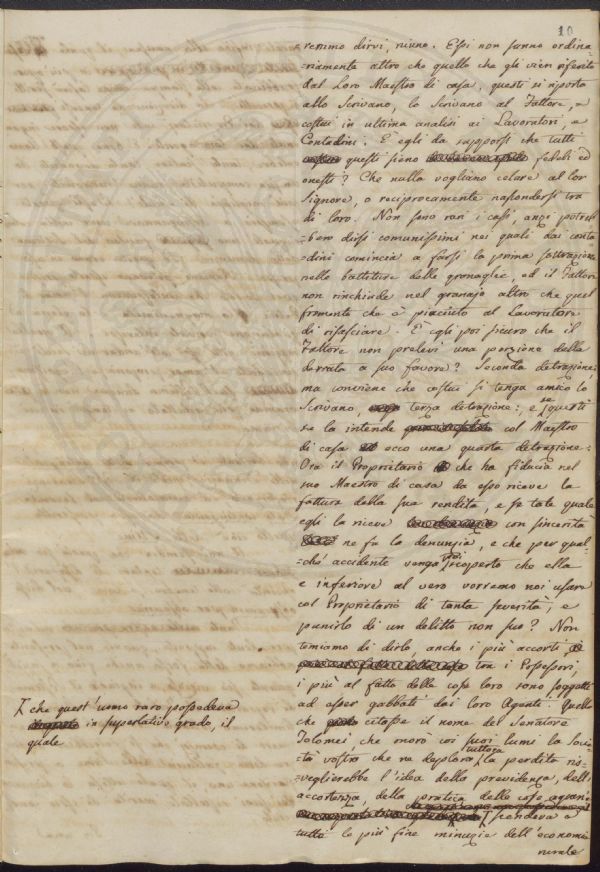 10
remmo dirvi, niuno. Essi non sanno ordina=
=riamente altro che quello che gli vien riferito
dal Loro Maestro di casa, questi si riporta
allo Scrivano, lo Scrivano al Fattore, e
costui in ultima analisi ai Lavoratori, e
Contadini. È egli da supporsi che tutti
questi sieno fedeli ed
onesti? Che nulla vogliano celare al lor
Signore, o reciprocamente nascondersi tra
di loro. Non sono rari i casi, anzi potreb
=bero dirsi comunissimi nei quali dai conta
=dini comincia a farsi la prima sottrazione
nelle battiture delle granaglie, ed il Fattore
non rinchiude nel granajo altro che quel
frumento che è piaciuto al Lavoratore
di rilasciare. È egli poi sicuro che il
Fattore non prelevi una porzione della
derrata a suo favore? Seconda detrazione;
ma conviene che costui si tenga amico lo
Scrivano, terza detrazione; e se questi
se la intende col Maestro
di casa ecco una quarta detrazione.
Ora il Proprietario che ha fiducia nel
suo Maestro di casa da esso riceve la
fattura della sua rendita, e se tale quale
egli la riceve con sincerità
ne fa la denunzia, e che per qual=
=ché accidente venga poi scoperto che ella
è inferiore al vero vorremo noi usare
col Proprietario di tanta severità, e
punirlo di un delitto non suo? Non
temiamo di dirlo, anche i più accorti
tra i Possessori
i più al fatto delle cose loro sono soggetti
ad esser gabbati dai loro Agenti. Quello
che citasse il nome del Senatore
Tolomei che morò coi suoi lumi la Socie
tà vostra che ne deplora tuttora la perdita ris=
=veglierebbe l'idea della previdenza, dell'
accortezza, della pratica delle cose
scendeva a
tutte le più fine minuzie dell'economia
rurale
che quest'uomo raro possedeva
in superlativo grado, il
quale